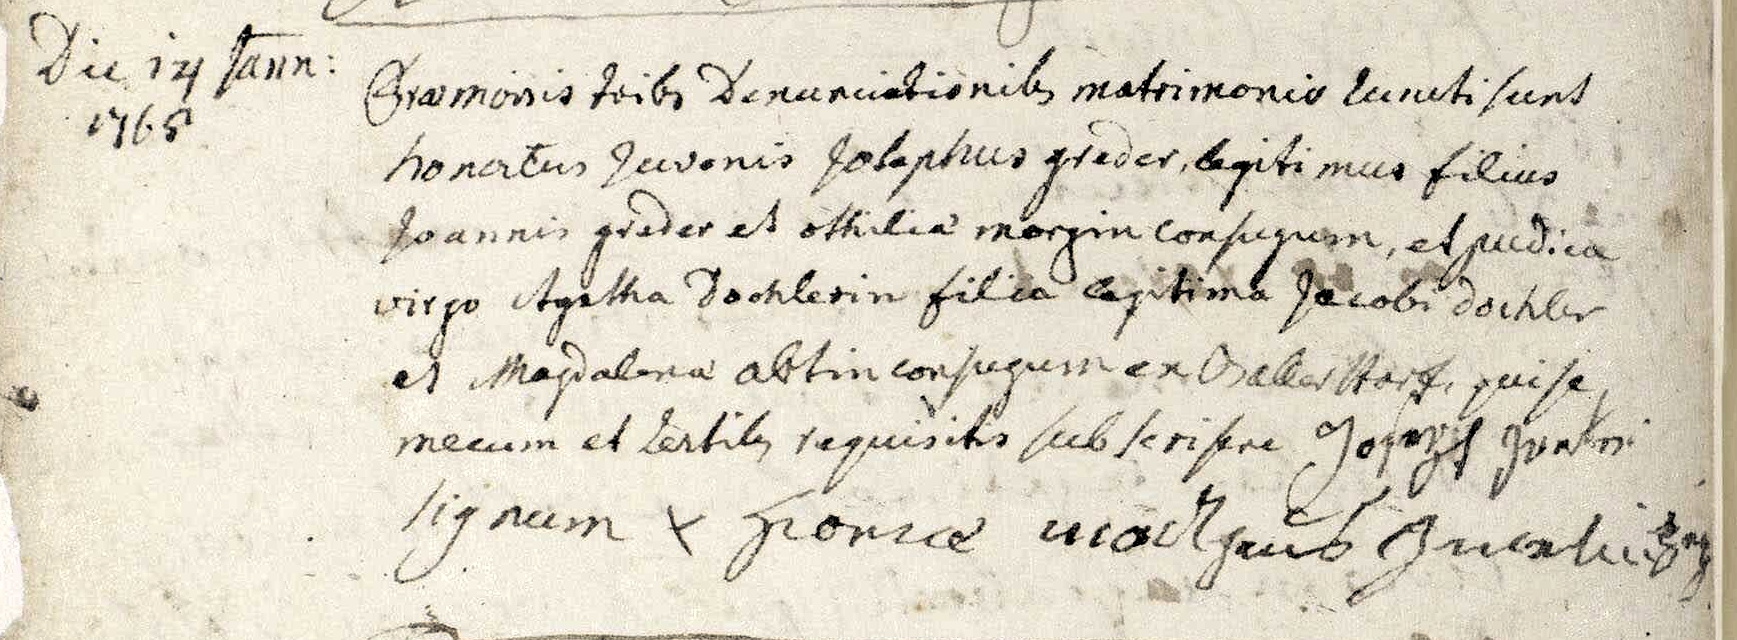 Die 14 Jann:
1765
Præmissis tribs Denunciationibs matrimonio Juncti sunt
honestus Juvenis Josephus greder, legitimus filius
Joannis greder et othiliæ morgin conjugum, et pudica
virgo Agatha Dochlerin filia legitima Jacobi dochler
et Magdalenæ abtin conjugum ex qui se
mecum et testibs requisitis subscripsere Joseph
signum x sponsæ